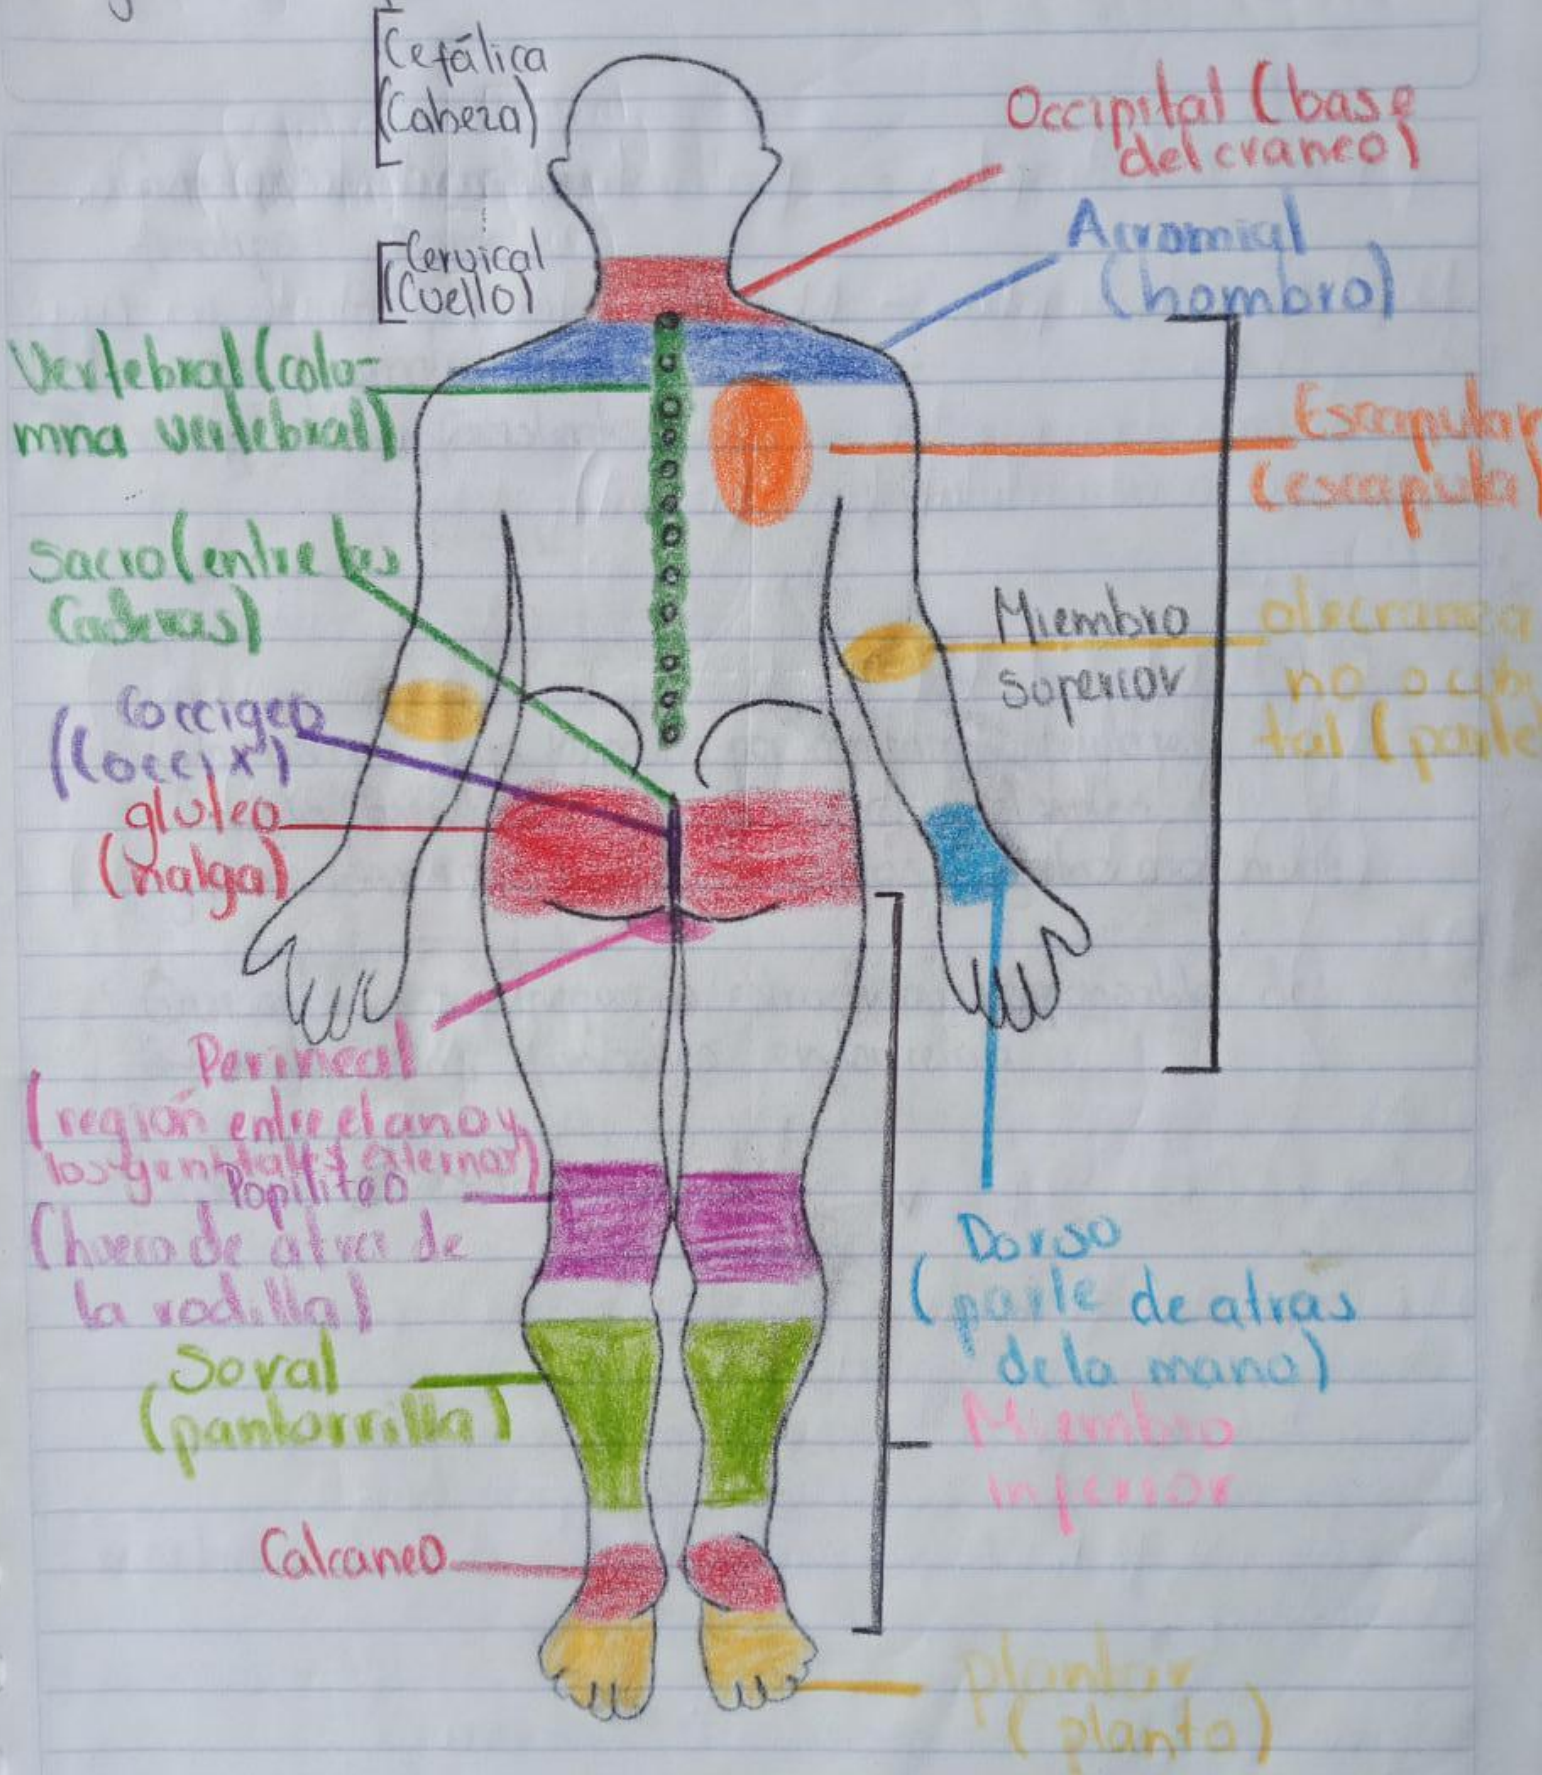 [Cefálica
(Cabeza)
Occipital (base
del craneo)
[Cervical
(Cuello)
Acromial
(hombro)
Vertebral (colu-
mna vertebral)
Escapular
(escapula)
Sacro (entre las
Caderas)
Miembro
superior
olecranea
no o cubi
tal (parte
Coccigeo
(Coccix)
gluteo
(nalga)
Perineal
(region entre el ano y
los genitales externos)
Popliteo
(hueco de atras de
la rodilla)
Dorso
(parte de atras
de la mano)
Soral
(pantorrilla)
Miembro
inferior
Calcaneo
plantar
(planta)